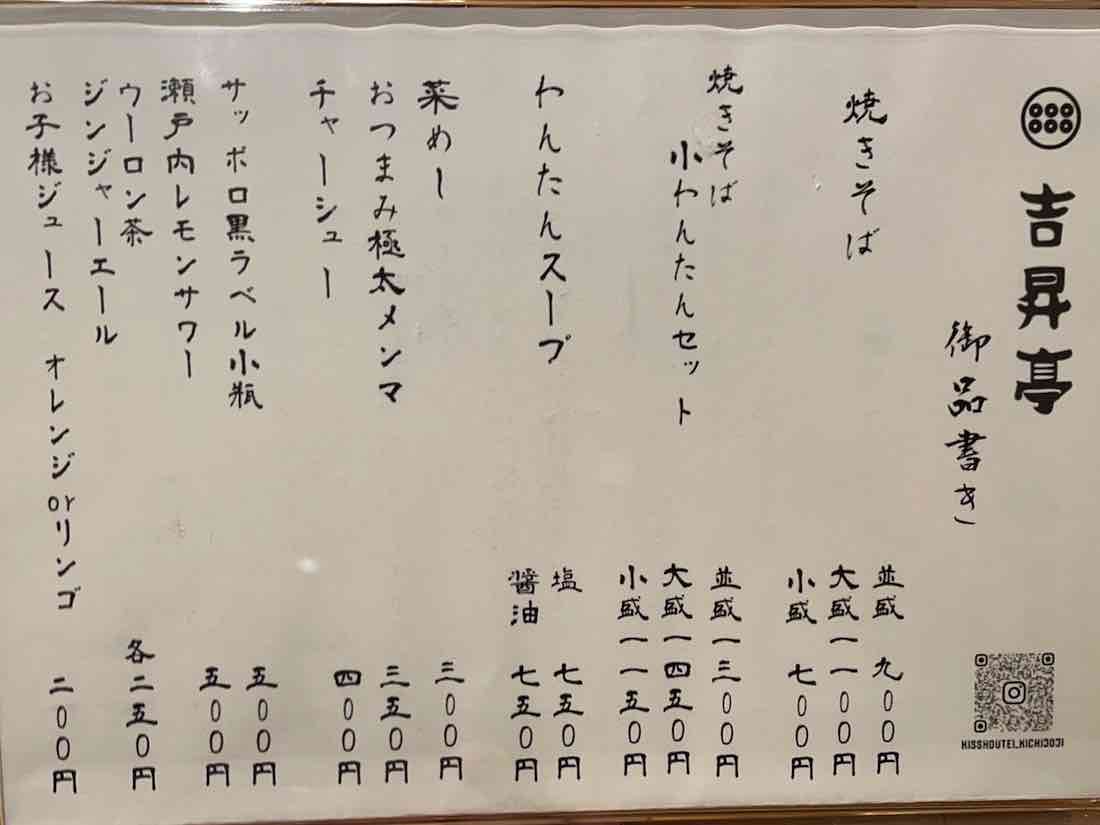 吉昇亭
御品書き
焼きそば
並盛 九〇〇円
大盛 一一〇〇円
小盛 七〇〇円
焼きそば
小わんたんセット
並盛 一三〇〇円
大盛 一四五〇円
小盛 一一五〇円
わんたんスープ
塩 七五〇円
醤油 七五〇円
菜めし 三〇〇円
おつまみ極太メンマ 三五〇円
チャーシュー 四〇〇円
サッポロ黒ラベル小瓶 五〇〇円
瀬戸内レモンサワー 五〇〇円
ウーロン茶
ジンジャーエール
各二五〇円
お子様ジュース オレンジorリンゴ 二〇〇円
KISSHOUTEI_KICHIJOJI